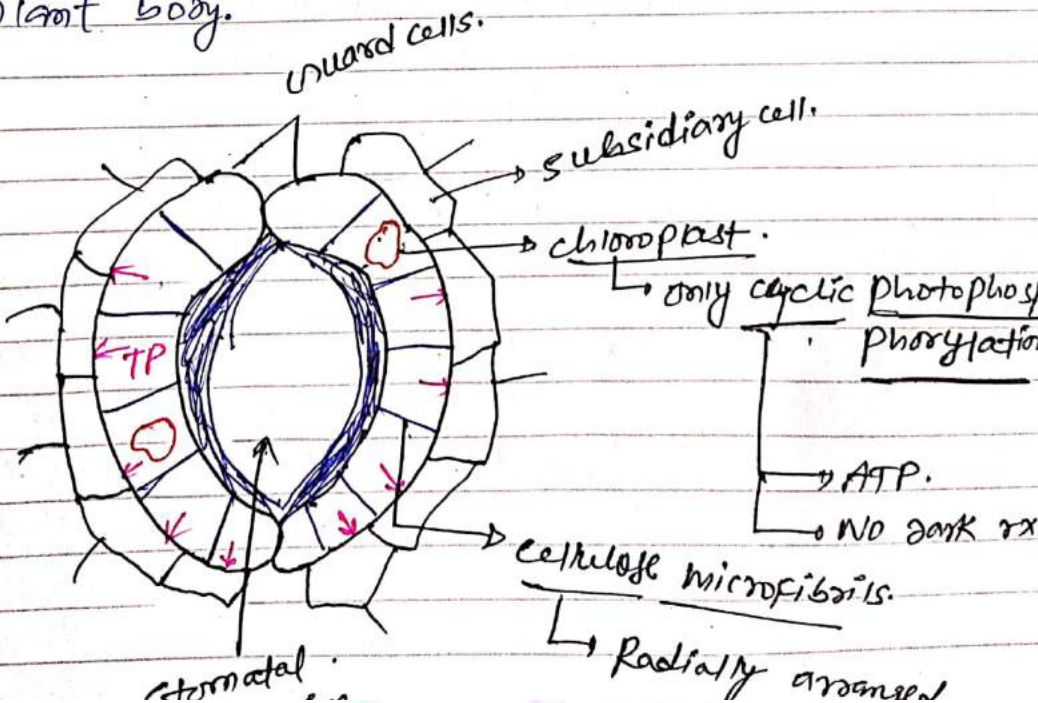 plant body.
Guard cells.
subsidiary cell.
chloroplast.
only cyclic photophos
phorylation
TP
ATP.
No dark rx
cellulose microfibrils.
Radially arranged
stomatal